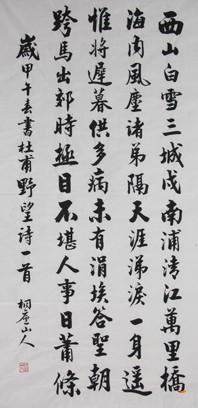 西山白雪三城戍南浦清江萬里橋
海内風塵諸弟隔天涯涕淚一身遥
惟將遲暮供多病未有涓埃答聖朝
跨馬出郊時極目不堪人事日蕭條
歲甲午春書杜甫野望詩一首
桐廬山人